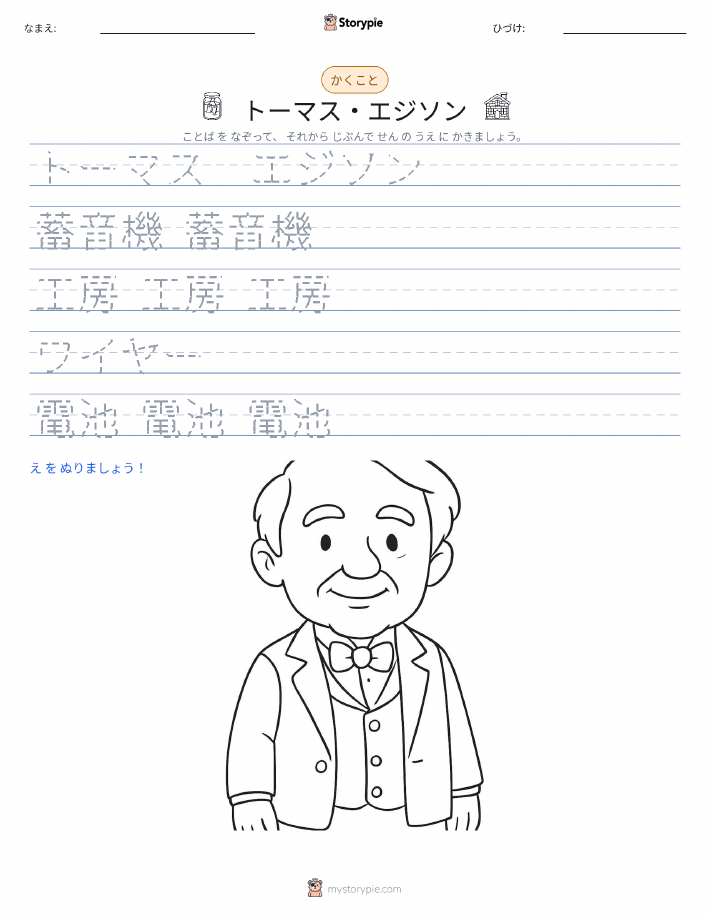 なまえ:
Storypie
ひづけ:
かくこと
トーマス・エジソン
ことば を なぞって、 それから じぶんで せん の うえ に かきましょう。
トーマス エジソン
蓄音機 蓄音機
工房 工房 工房
ワイヤー
電池 電池 電池
え を ぬりましょう！
mystorypie.com